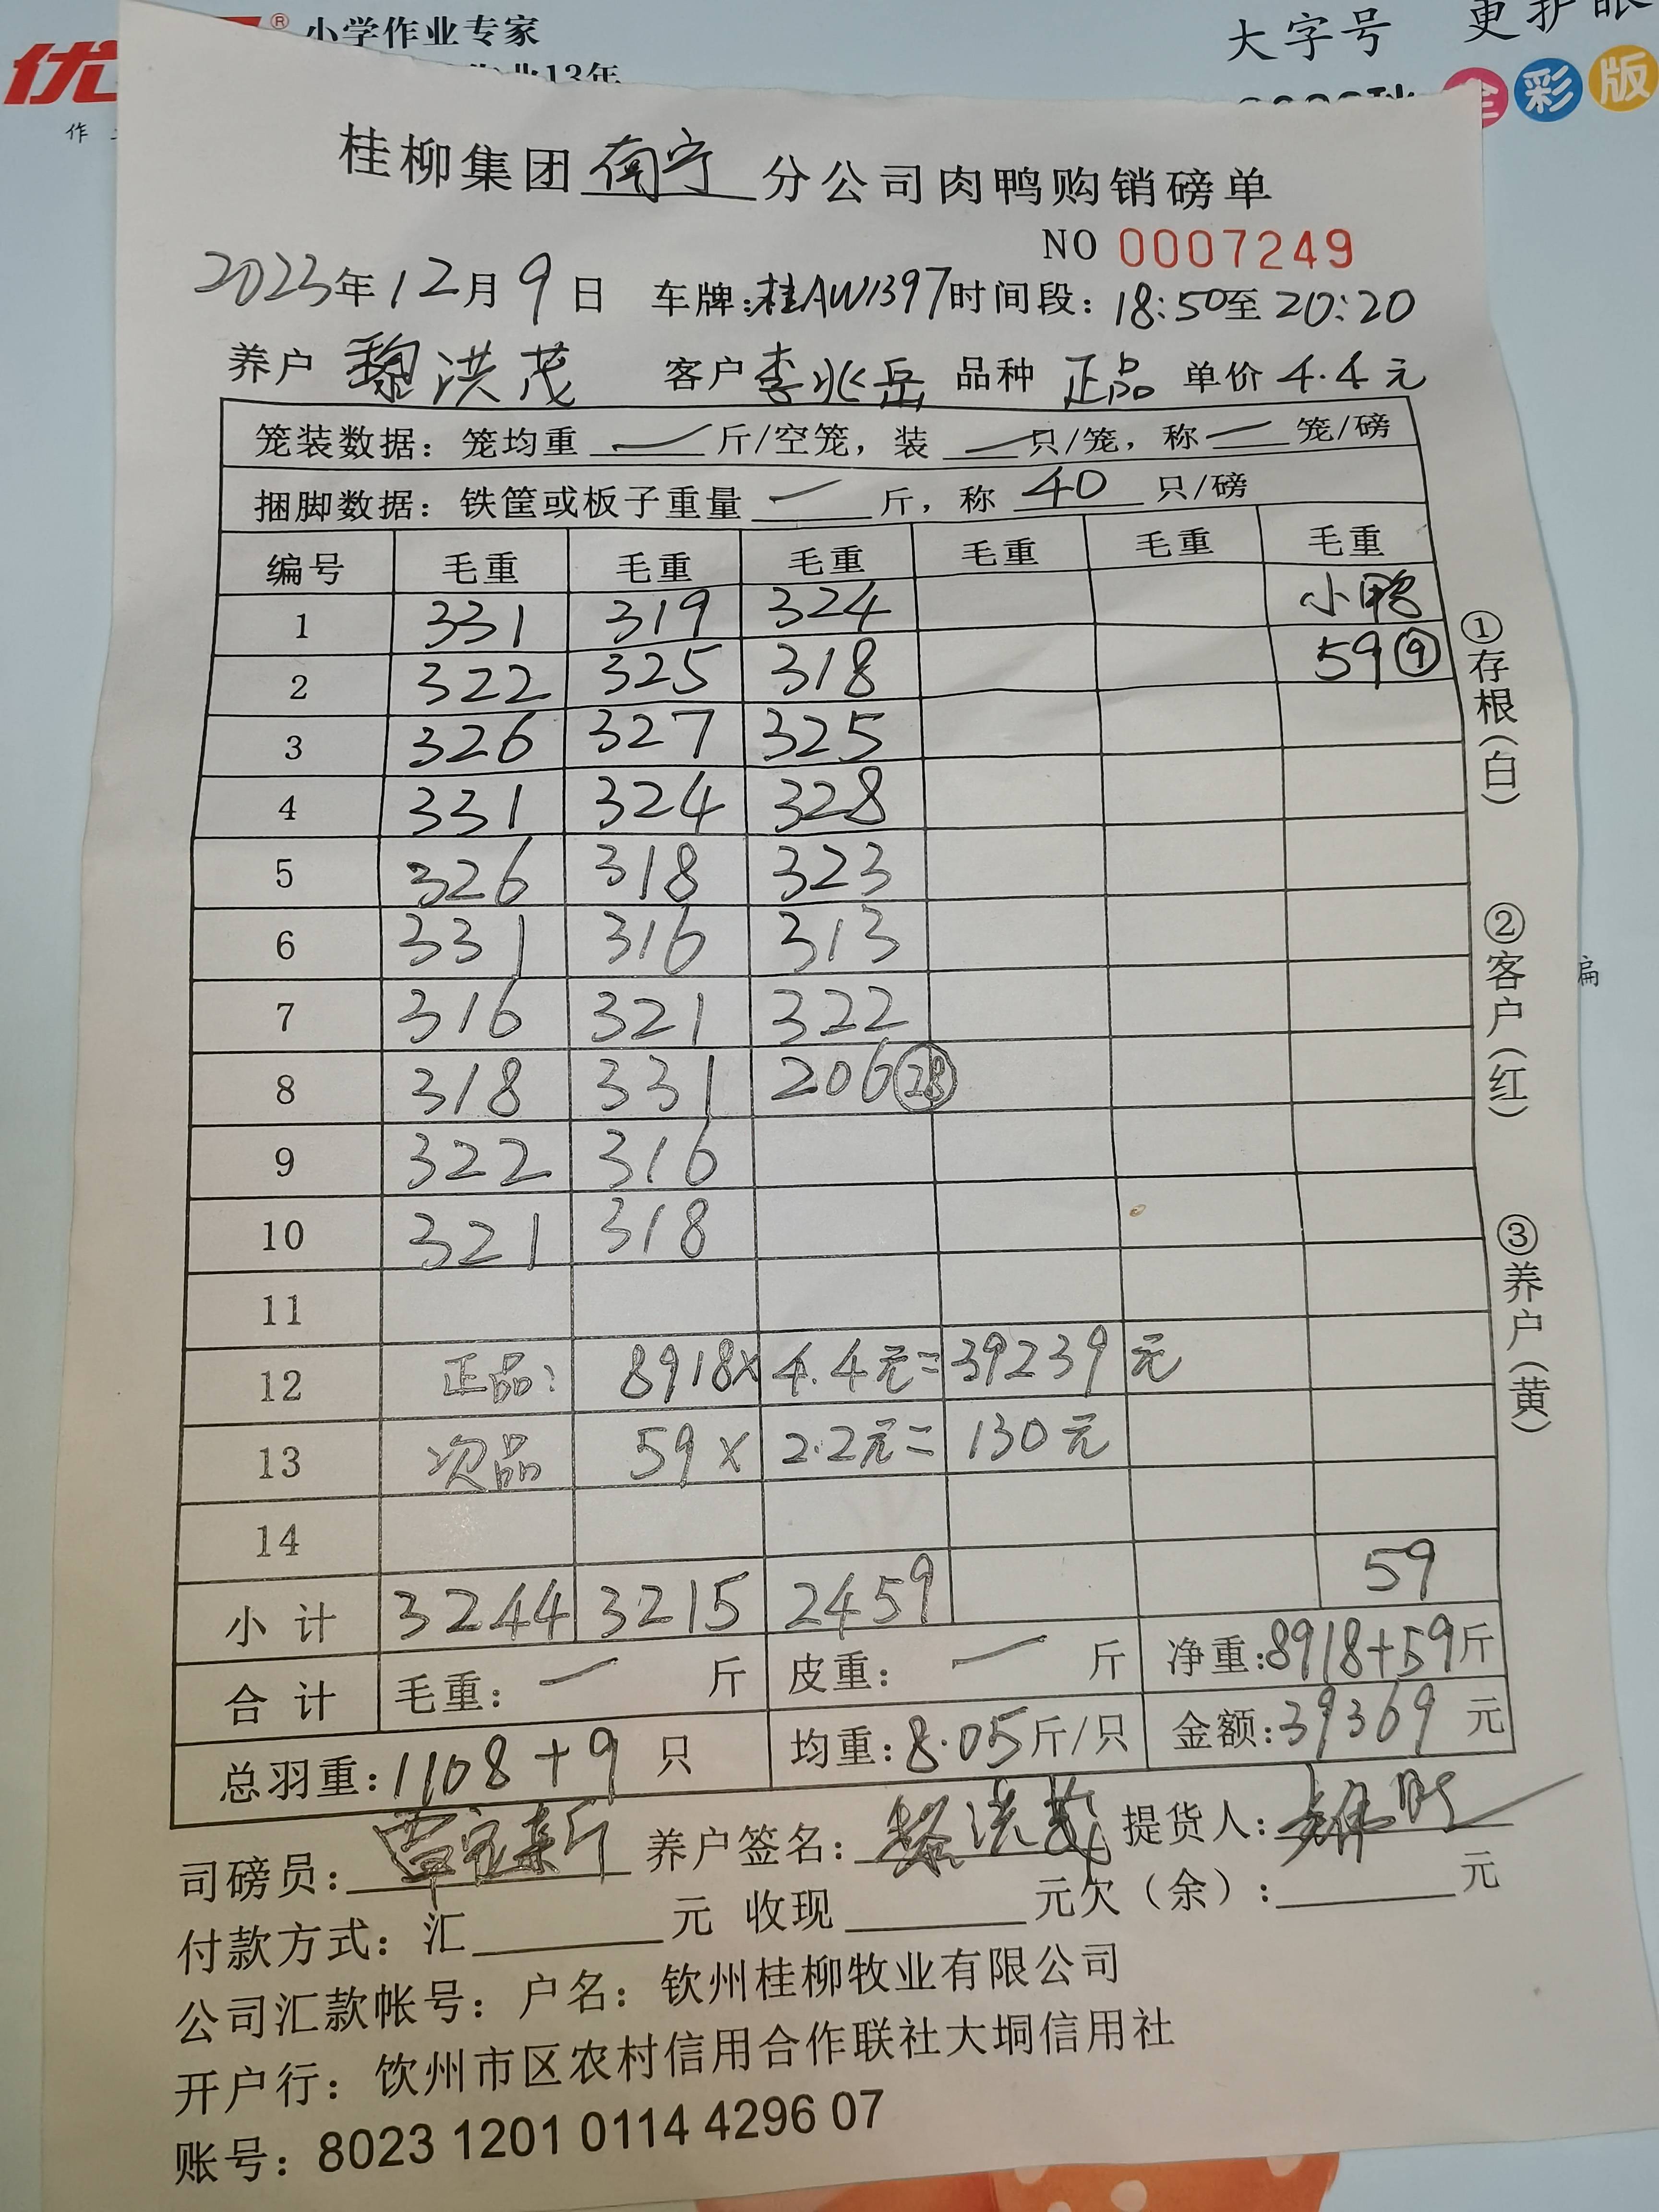 优
®
小学作业专家
业13年
大字号
更护眼
全彩版
桂柳集团南宁分公司肉鸭购销磅单
NO 0007249
2023年12月9日 车牌:桂AW1397时间段: 18:50至20:20
养户 黎洪茂 客户李兆岳 品种 正品 单价4.4元
笼装数据: 笼均重 — 斤/空笼, 装 — 只/笼, 称 — 笼/磅
捆脚数据: 铁筐或板子重量 — 斤, 称 40 只/磅
编号 毛重 毛重 毛重 毛重 毛重 毛重
1 331 319 324 小鸭
2 322 325 318 59⑨
3 326 327 325
4 331 324 328
5 326 318 323
6 331 316 313
7 316 321 322
8 318 331 206㉘
9 322 316
10 321 318
11
12 正品: 8918×4.4元=39239元
13 次品 59×2.2元=130元
14
小计 3244 3215 2459 59
合计 毛重: — 斤 皮重: — 斤 净重:8918+59斤
总羽重:1108+9只 均重:8.05斤/只 金额:39369元
①存根(白)
②客户(红)
③养户(黄)
司磅员: 养户签名:黎洪茂 提货人:
付款方式: 汇 元 收现 元欠(余): 元
公司汇款帐号: 户名: 钦州桂柳牧业有限公司
开户行: 钦州市区农村信用合作联社大垌信用社
账号: 8023 1201 0114 4296 07